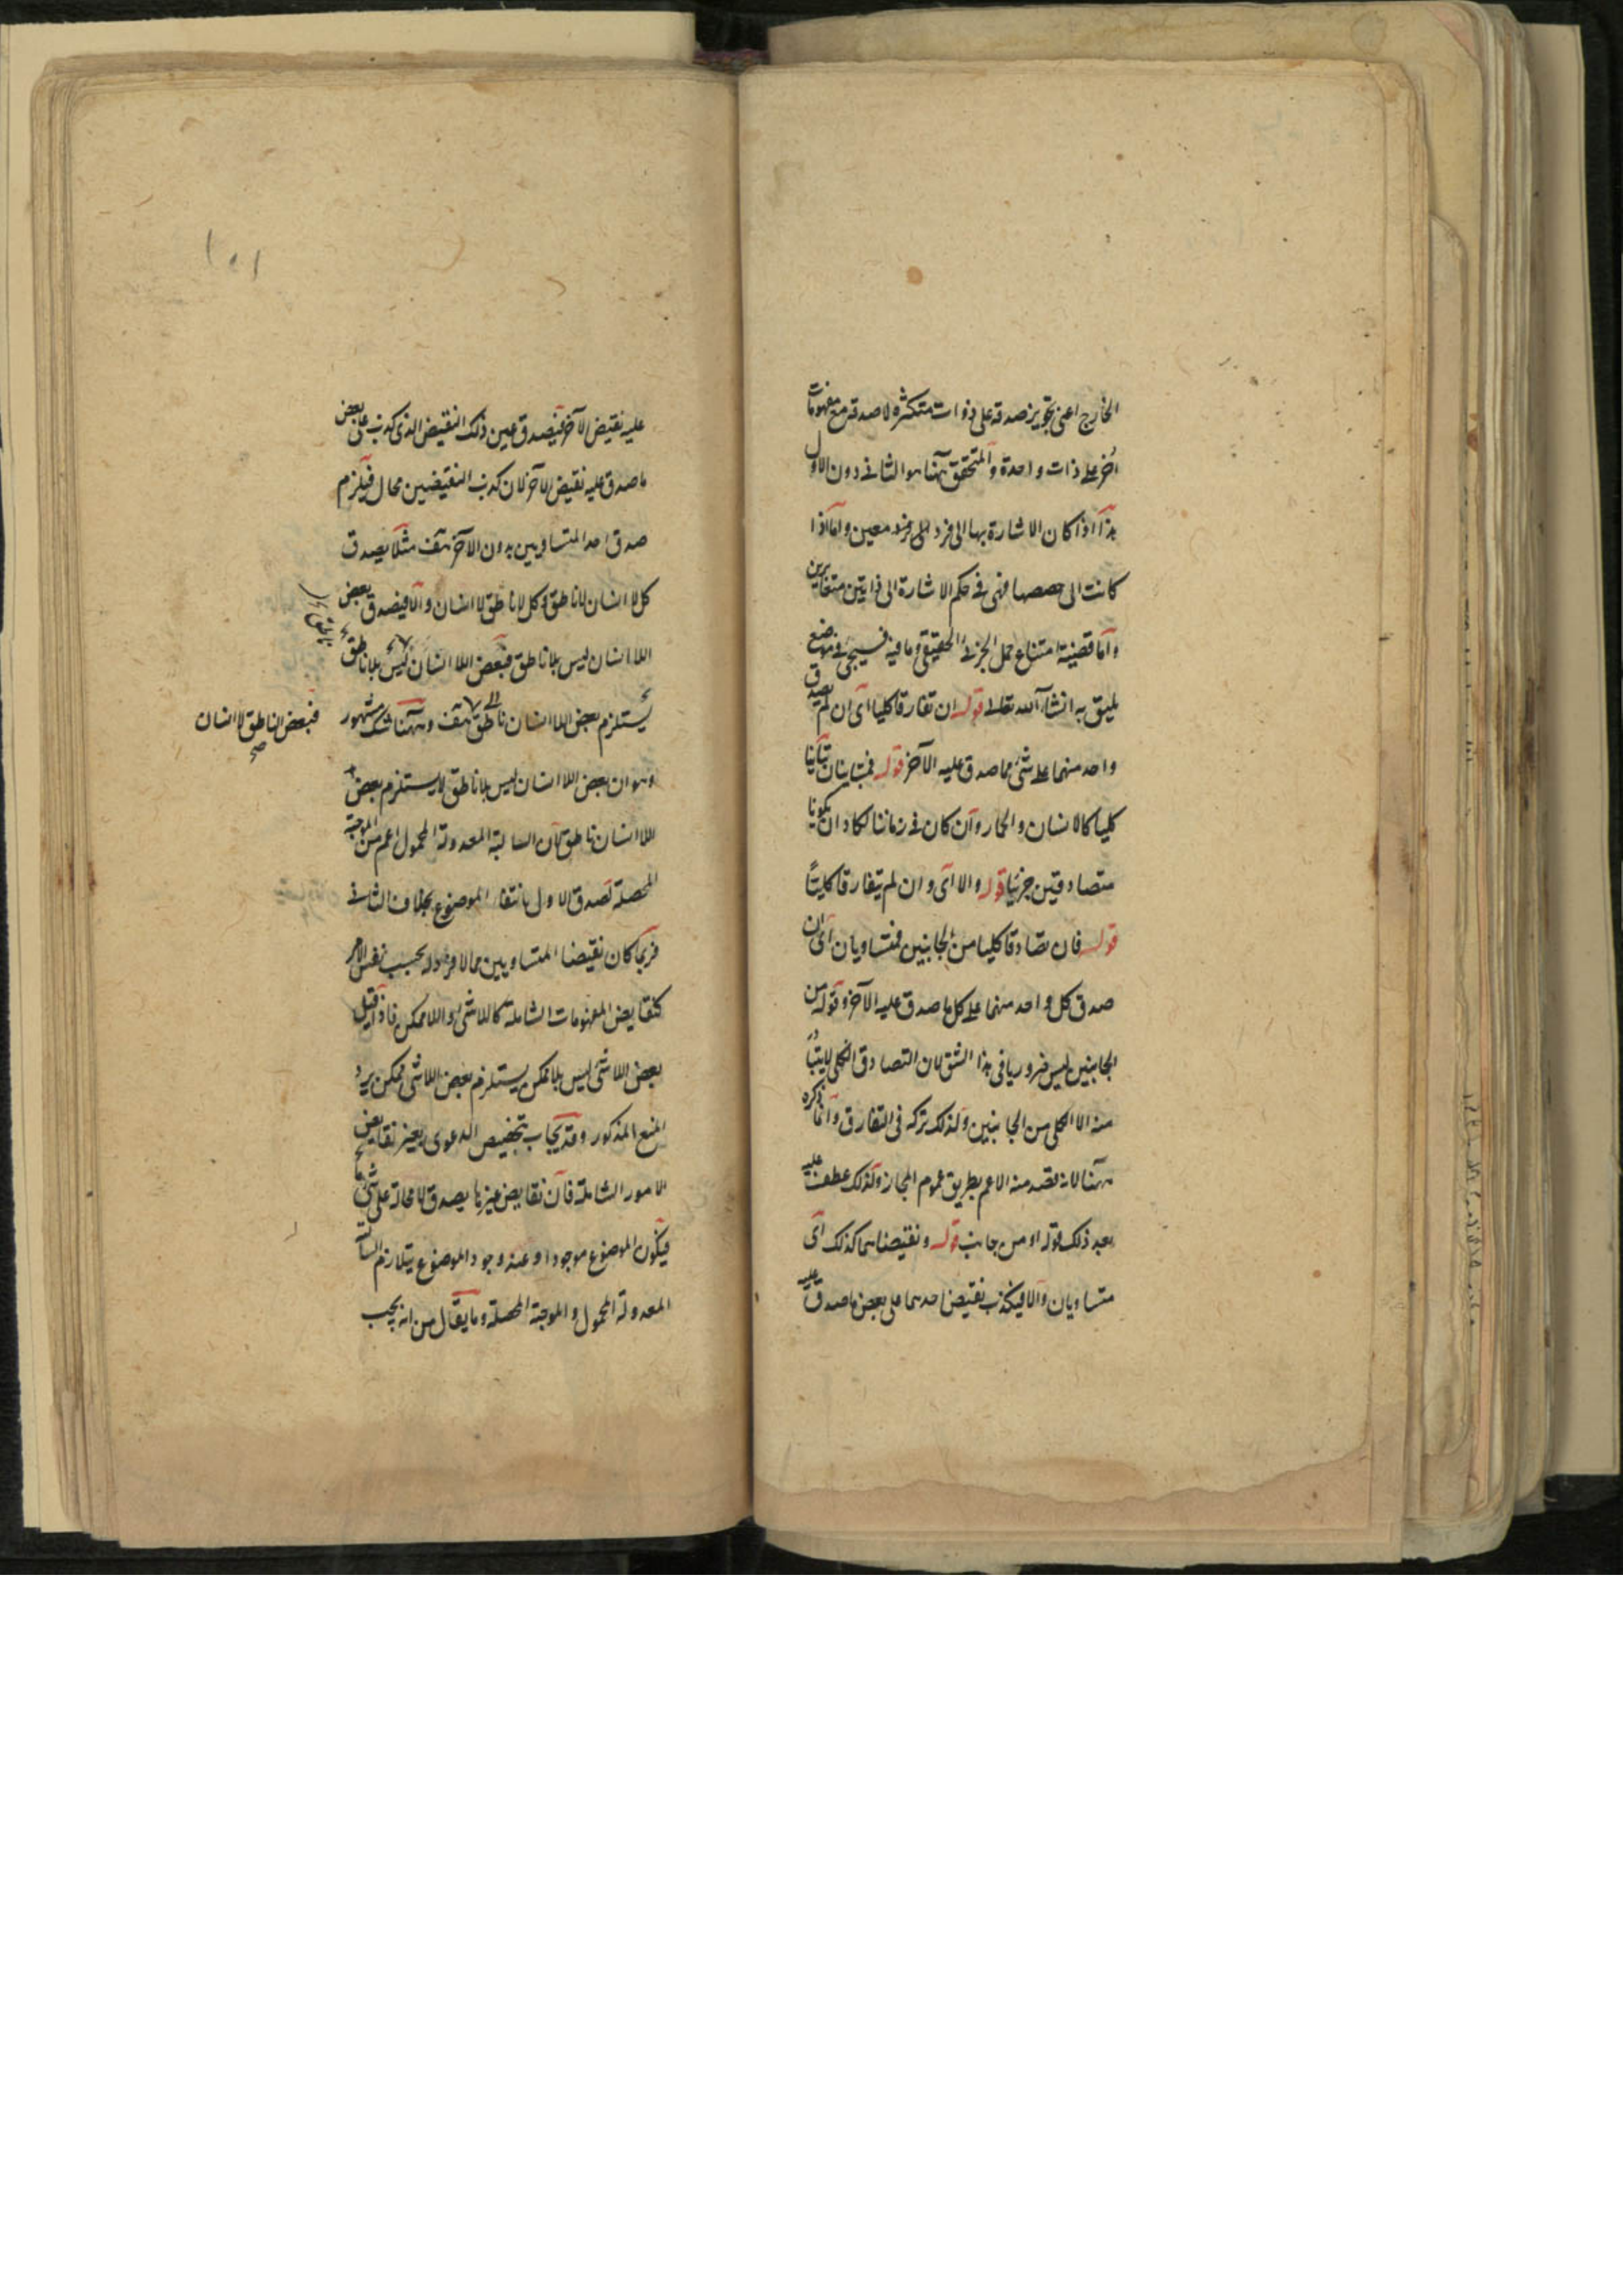 الخارج اعنى تجويز صدقه على ذوات متكثره لا صدقه مع مفهومات
اخر على ذات واحدة والمتحقق ههنا هو الثانى دون الاول
هذا اذا كان الاشارة بها الى فرد معين واما اذا
كانت الى حصصها فهى فى حكم الاشارة الى ذاتين متغايرين
واما قضية امتناع حمل الجزئى الحقيقى وما فيه فسيجئ فى موضع
يليق به انشاء الله تعالى قوله ان تفارقا كليا اى ان لم يصدق
واحد منهما على شئ مما صدق عليه الآخر قوله فمتباينان تباينا
كليا كالانسان والحمار وان كان فى زماننا لكادا ان يكونا
متصادقين جزئيا قوله والا اى وان لم يتفارقا كليًا
قوله فان تصادقا كليا من الجانبين فمتساويان اى ان
صدق كل واحد منهما على كل ما صدق عليه الآخر وقوله من
الجانبين ليس ضروريا فى هذا الشق لان التصادق الكلى لا يتبادر
منه الا الكلى من الجانبين ولذلك تركه فى التفارق وانما ذكره
ههنا لانه قصد منه الاعم بطريق عموم المجاز ولذلك عطف عليه
بعد ذلك قوله او من جانب قوله ونقيضاهما كذلك اى
متساويان والا فيكذب نقيض احدهما على بعض ما صدق عليه
١٠١
عليه نقيض الآخر فيصدق عين ذلك النقيض الذى كذب على بعض
ما صدق عليه نقيض الآخر لان كذب النقيضين محال فيلزم
صدق احد المتساويين بدون الآخر هف مثلا يصدق
كل لا انسان لا ناطق وكل لا ناطق لا انسان والا فيصدق بعض
اللا انسان ليس بلا ناطق فبعض اللا انسان ليس بلا ناطق
يستلزم بعض اللا انسان ناطق هف وههنا شك مشهور
فبعض الناطق لا انسان صح
وهو ان بعض اللا انسان ليس بلا ناطق لا يستلزم بعض
اللا انسان ناطق لان السالبة المعدولة المحمول اعم من الموجبة
المحصلة لصدق الاول بانتفاء الموضوع بخلاف الثانى
فربما كان نقيضا المتساويين مما لا فرد له بحسب نفس الامر
كنقايض المفهومات الشاملة كاللاشئ واللاممكن فاذا قيل
بعض اللاشئ ليس بلا ممكن يستلزم بعض اللاشئ ممكن يرد
المنع المذكور وقد يجاب بتخصيص الدعوى بغير نقايض
الامور الشاملة فان نقايض غيرها يصدق لا محالة على شئ ما
فيكون الموضوع موجودا وعند وجود الموضوع يتلازم السالبة
المعدولة المحمول والموجبة المحصلة وما يقال من انه يجب